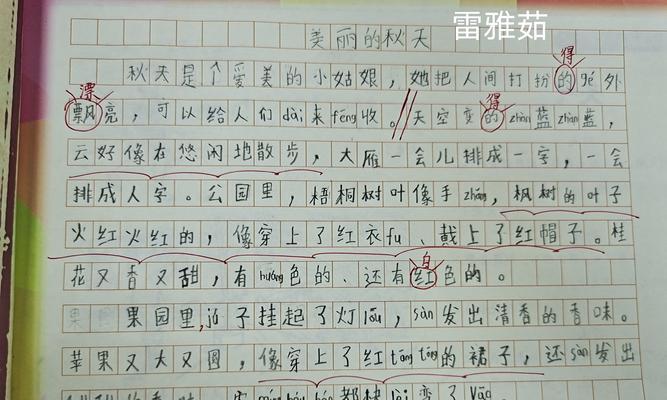 美丽的秋天
雷雅茹
秋天是个爱美的小姑娘，她把人间打扮的gé外
得
飘亮，可以给人们dài来fēng收。天空变的zhàn蓝zhàn蓝，
漂
得
云好像在悠闲地散步，大雁一会儿排成一字，一会
排成人字。公园里，梧桐树叶像手zhǎng，枫树的叶子
火红火红的，像穿上了红衣fu、戴上了红帽子。桂
花又香又甜，有huáng色的、还有红色的。
白
果园里，子挂起了灯lóu，sàn发出清香的香味。
苹果又大又圆，像穿上了红tōng tōng的裙子，还sàn发出